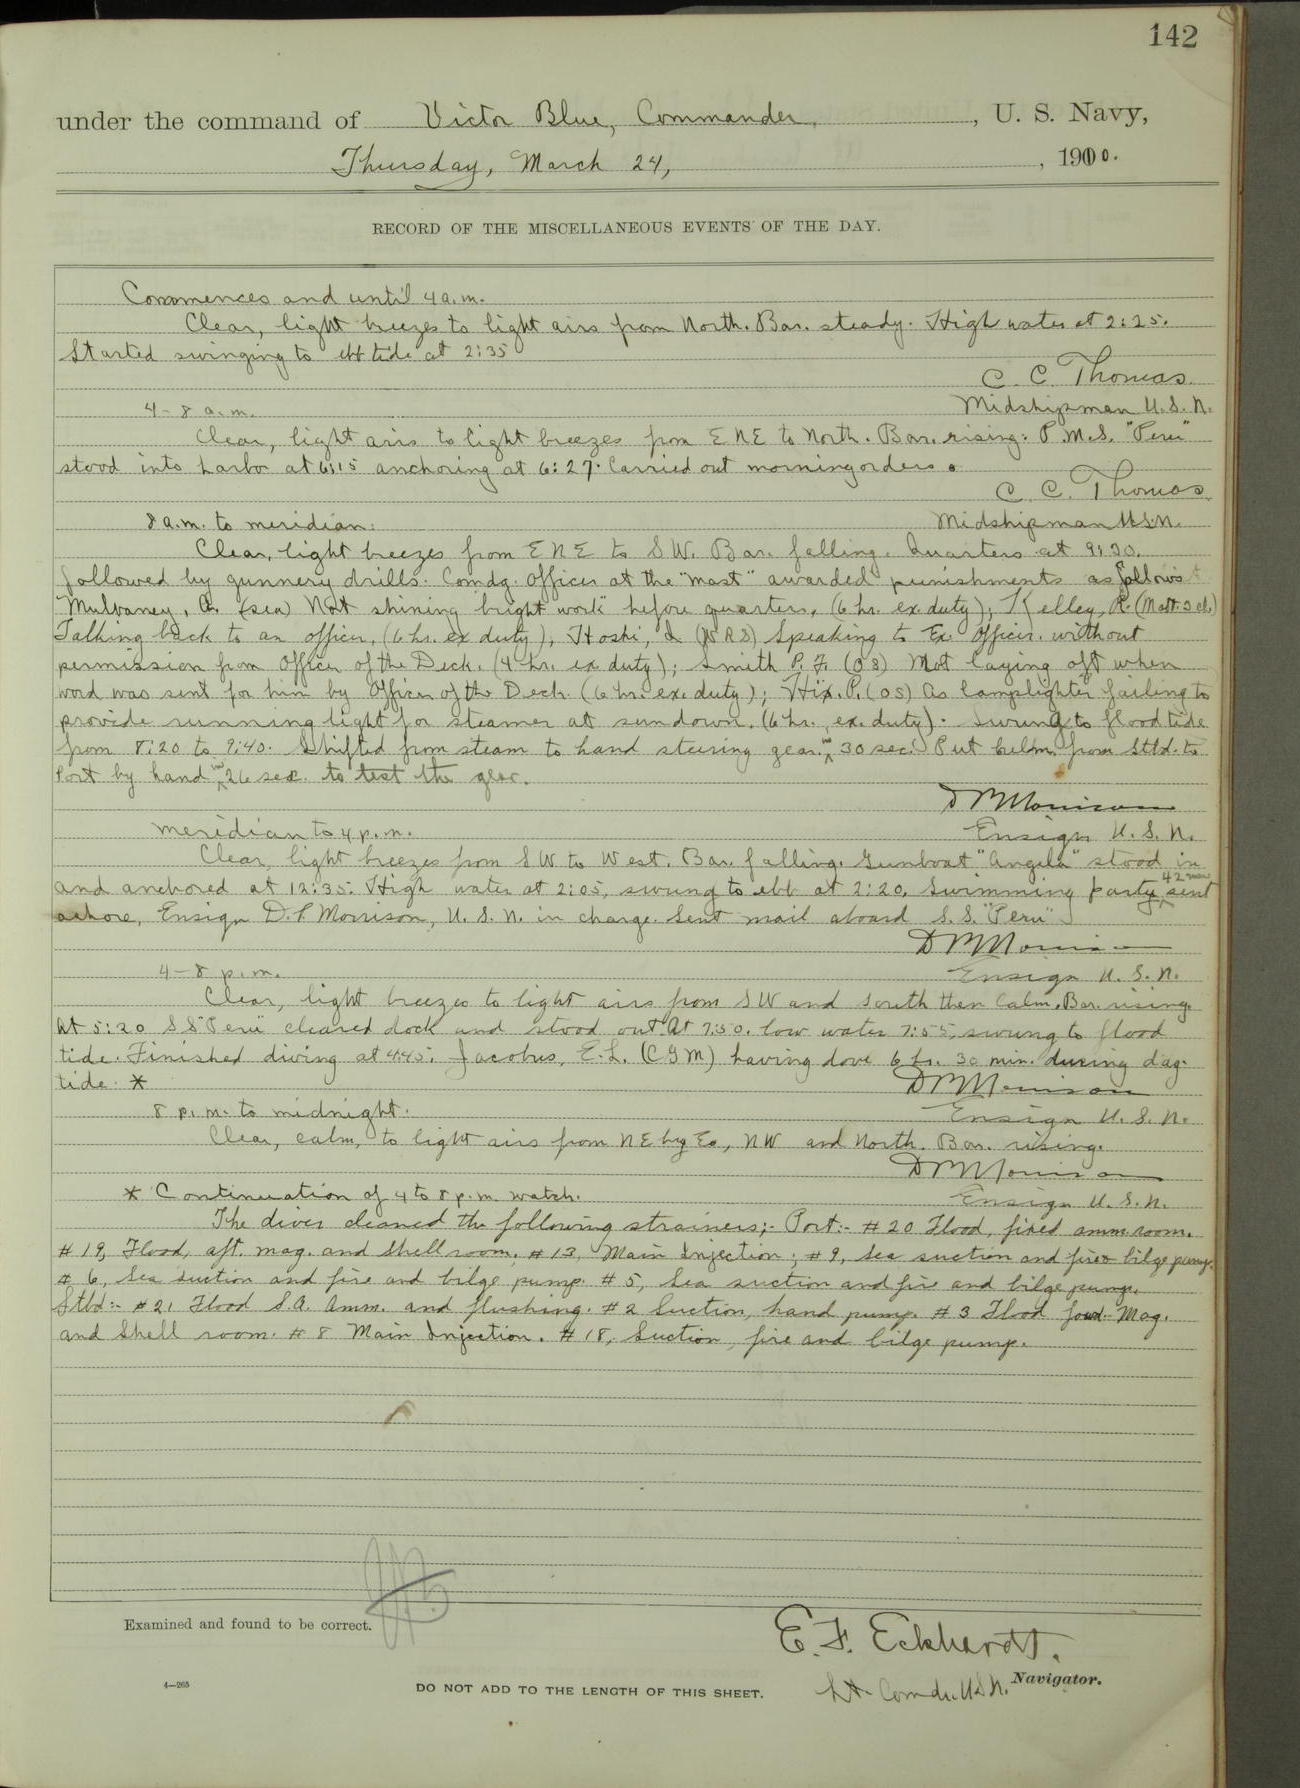 142
under the command of Victor Blue, Commander, U. S. Navy,
Thursday, March 24, 1910.
RECORD OF THE MISCELLANEOUS EVENTS OF THE DAY.
Commences and until 4 a.m.
Clear, light breezes to light airs from North. Bar. steady. High water at 2:25.
Started swinging to ebb tide at 2:35
C. C. Thomas
Midshipman U.S.N.
4-8 a.m.
Clear, light airs to light breezes from ENE to North. Bar. rising. P.M.S. "Peru"
stood into harbor at 6:15 anchoring at 6:27. Carried out morning orders.
C. C. Thomas
Midshipman U.S.N.
8 a.m. to meridian.
Clear, light breezes from ENE to SW. Bar. falling. Quarters at 9:30.
followed by gunnery drills. Comdg. Officer at the "mast" awarded punishments as follows
Mulvaney, (sea) Not shining bright work before quarters, (6 hr. ex. duty); Kelley, R. (Matt. 3 cl.)
Talking back to an officer, (6 hr. ex duty), Hoshi, I. (WRS) Speaking to Ex. Officer without
permission from Officer of the Deck. (4 hr. ex duty); Smith P. F. (OS) Not laying aft when
word was sent for him by Officer of the Deck (6 hr. ex. duty); Hix. P. (OS) As lamplighter failing to
provide running light for steamer at sundown. (6 hr. ex. duty). Swung to flood tide
from 8:20 to 9:40. Shifted from steam to hand steering gear in 30 sec. Put helm from Stbd. to
Port by hand in 26 sec. to test the gear.
D P Morrison
Ensign U. S. N.
Meridian to 4 p.m.
Clear, light breezes from SW to West. Bar. falling. Gunboat "Angela" stood in
and anchored at 12:35. High water at 2:05, swung to ebb at 2:20. Swimming party 42 men sent
ashore, Ensign D. P. Morrison, U. S. N. in charge. Sent mail aboard S. S. "Peru".
D P Morrison
Ensign U. S. N.
4-8 p.m.
Clear, light breezes to light airs from SW and South then Calm. Bar. rising.
At 5:20 S.S. "Peru" cleared dock and stood out. At 7:50. low water 7:55, swung to flood
tide. Finished diving at 4:45. Jacobus, E. L. (CGM) having dove 6 hr. 30 min. during day.
tide. *
D P Morrison
Ensign U. S. N.
8 p.m. to midnight.
Clear, calm, to light airs from NE by E., NW and North. Bar. rising.
D P Morrison
Ensign U. S. N.
* Continuation of 4 to 8 p.m. watch.
The diver cleaned the following strainers;- Port:- #20 Flood, fixed amm. room.
#19, Flood, aft. mag. and shell room; #13, Main Injection; #9, Sea suction and fire bilge pump.
#6, Sea suction and fire and bilge pump. #5, Sea suction and fire and bilge pump.
Stbd:- #21 Flood S.A. Amm. and flushing. #2 Suction, hand pump. #3 Flood ford. Mag.
and Shell room. #8 Main Injection. #18, Suction, fire and bilge pump.
Examined and found to be correct.
E. F. Eckhardt.
Lt. Comdr. U.S.N. Navigator.
4—265
DO NOT ADD TO THE LENGTH OF THIS SHEET.